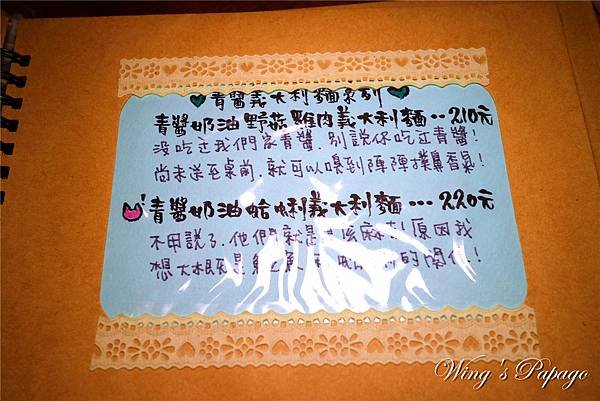 青醬義大利麵系列
青醬奶油野菇雞肉義大利麵‧‧210元
没吃过我們家青醬,別說你吃过青醬!
尚未送至桌前,就可以嗅到陣陣撲鼻香氣!
青醬奶油蛤蜊義大利麵‧‧‧220元
不用說了,他們就是 麻吉!原因我
想大概是 的関係!
Wing's Papago